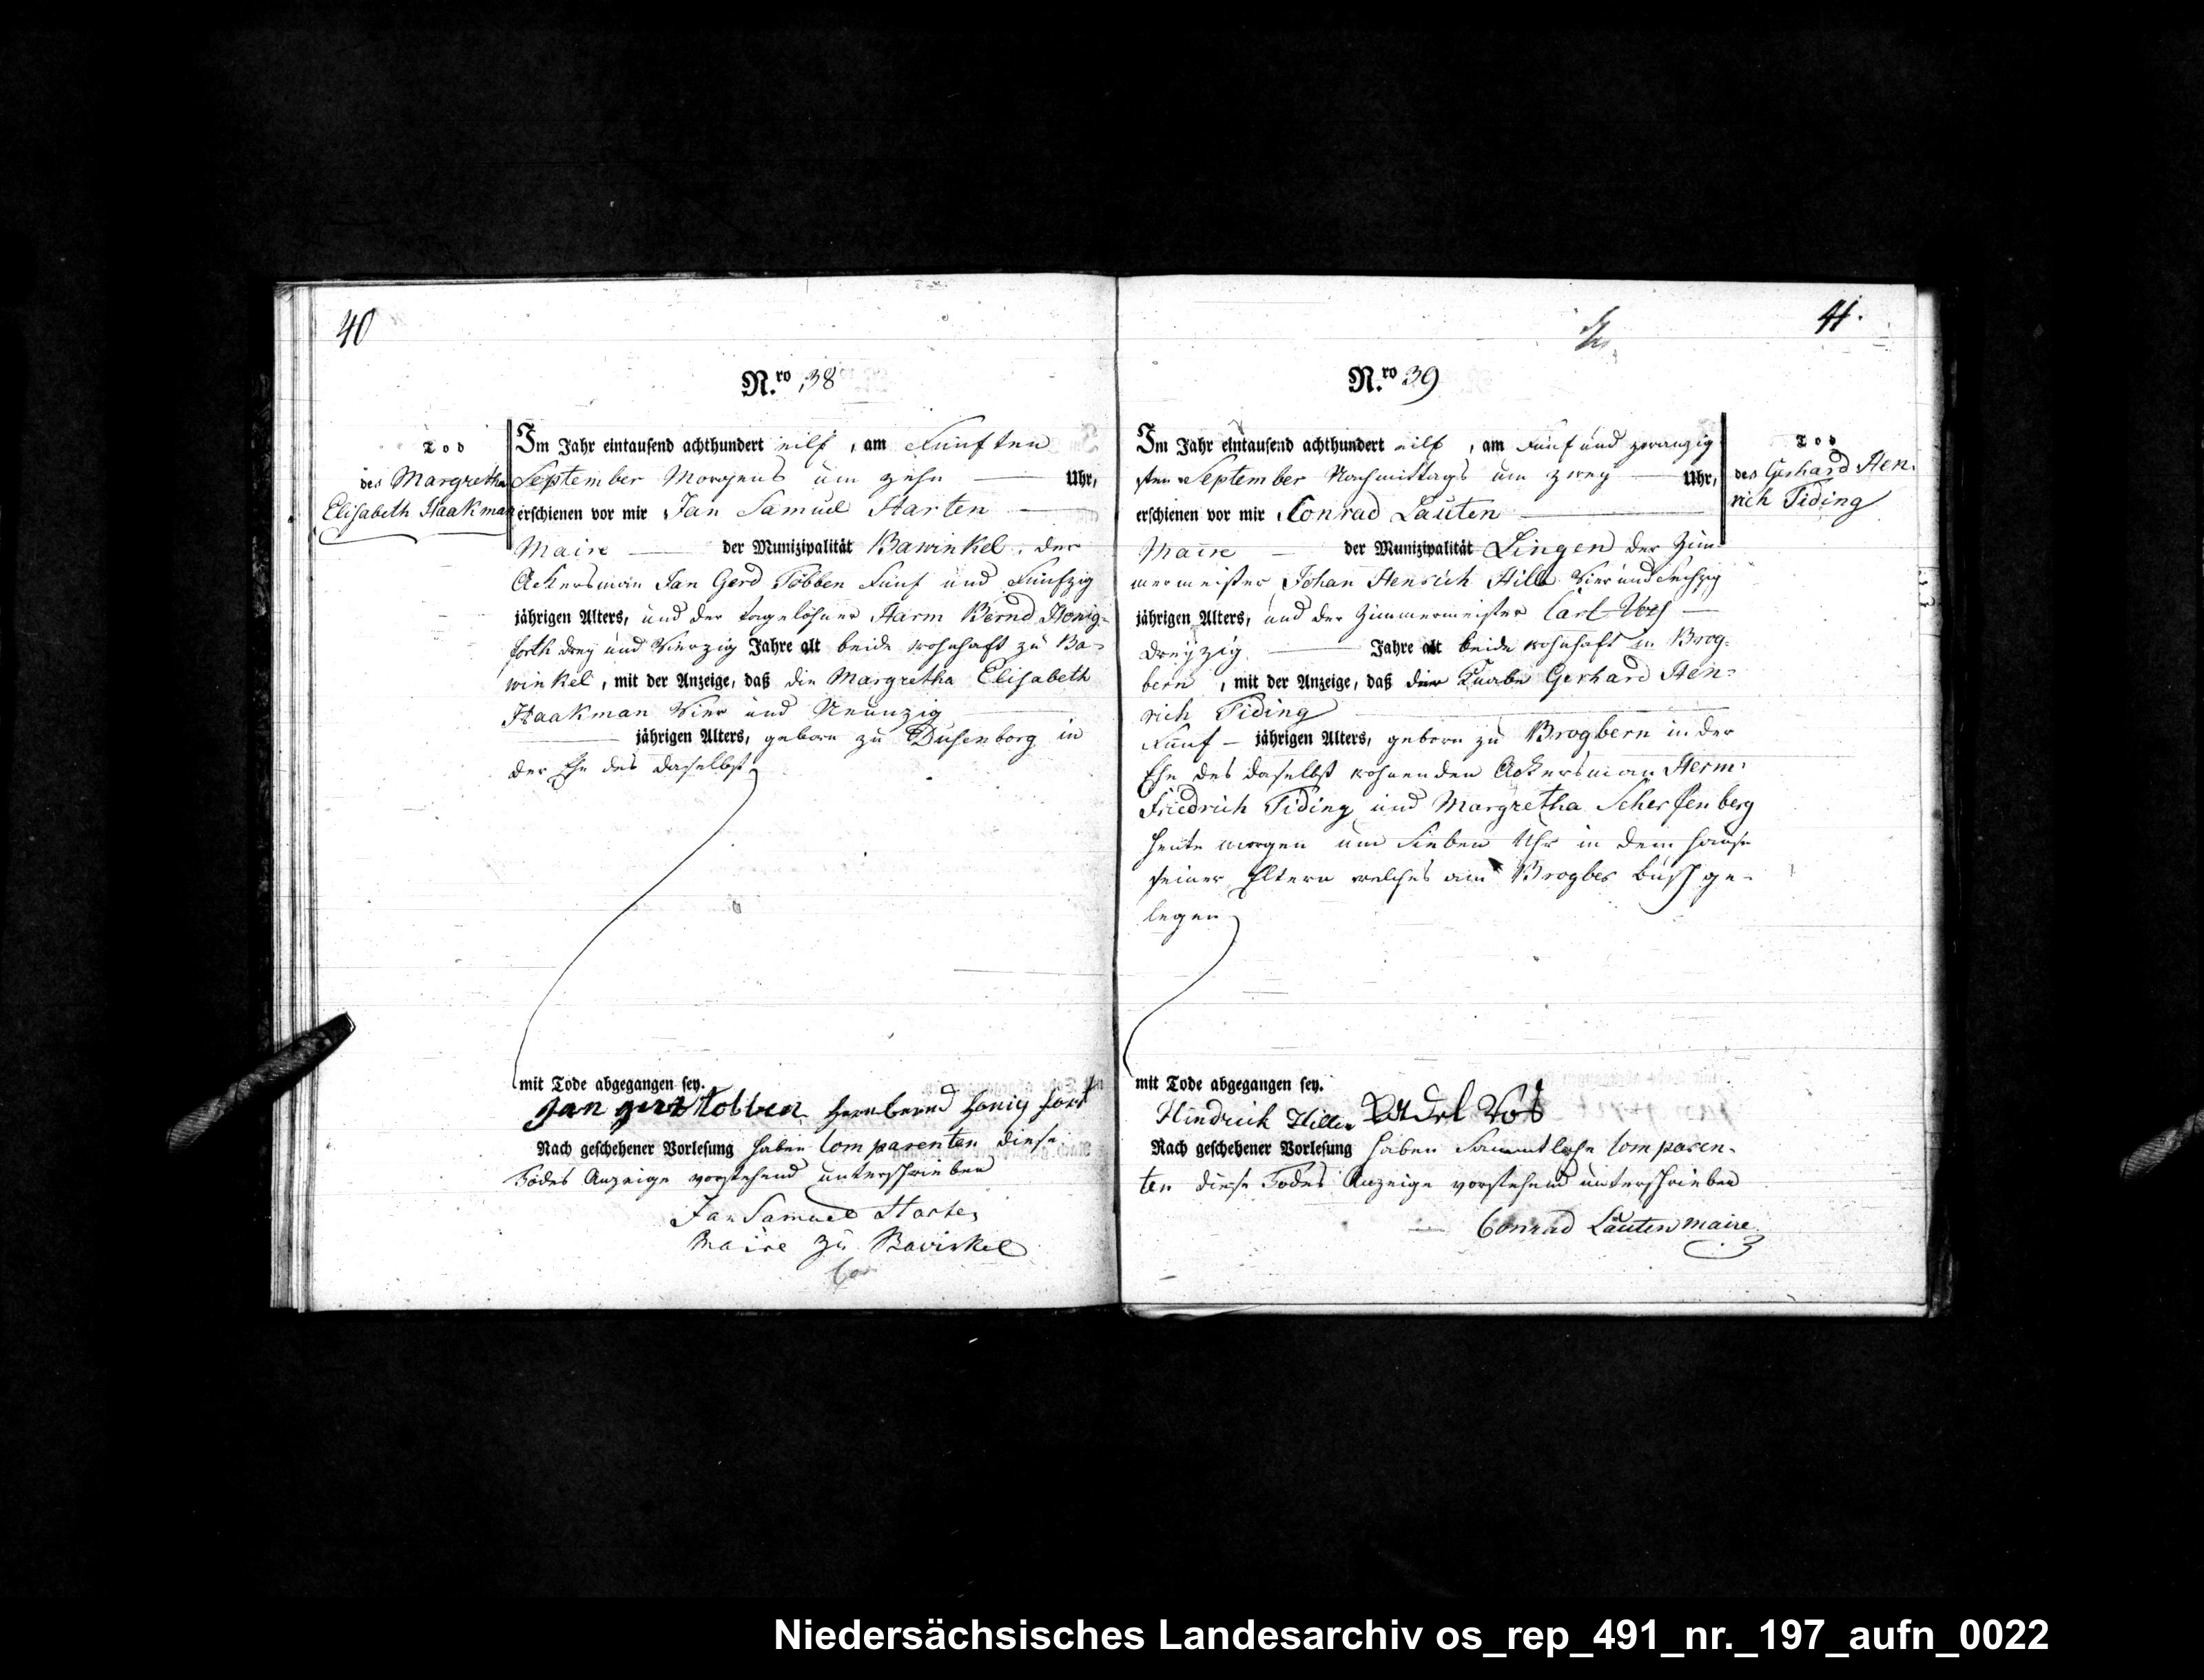 40
N.ro 38
Tod
des Margretha
Elisabeth Haakman
Im Jahr eintausend achthundert eilf, am Fünften
September Morgens um zehn Uhr,
erschienen vor mir Jan Samuel Harten
Maire der Munizipalität Bawinkel, der
Ackersman Jan Gerd Többen Fünf und Fünfzig
jährigen Alters, und der tagelöhner Harm Bernd Honig-
forth drey und Vierzig Jahre alt beide wohnhaft zu Ba-
winkel, mit der Anzeige, daß die Margretha Elisabeth
Haakman Vier und Neunzig
jährigen Alters, geborn zu Dusenborg in
der Ehe des daselbst
mit Tode abgegangen sey.
Jan gerd tobben Harmbernd Honig fort
Nach geschehener Vorlesung haben Comparenten diese
Todes Anzeige vorstehend unterschrieben
Jan Samuel Harten
Maire zu Bawinkel
41.
N.ro 39
Tod
des Gerhard Hen-
rich Tiding
Im Jahr eintausend achthundert eilf, am Fünf und zwanzig
sten September Nachmittags um zwey Uhr,
erschienen vor mir Conrad Lauten
Maire der Munizipalität Lingen der Zim-
mermeister Johan Henrich Hille Vier und Sechzig
jährigen Alters, und der Zimmermeister Carl Vos
Dreyzig Jahre alt beide wohnhaft in Brog-
bern, mit der Anzeige, daß der Knabe Gerhard Hen-
rich Tiding
Fünf jährigen Alters, geborn zu Brogbern in der
Ehe des daselbst wohnenden Ackersman Herm:
Friedrich Tiding und Margretha Scherfenberg
heute morgen um Sieben Uhr in dem Hause
seiner Eltern welches am Brogber Busch ge-
legen
mit Tode abgegangen sey.
Hindrich Hille Vos
Nach geschehener Vorlesung haben Samtliche Comparen-
ten diese Todes Anzeige vorstehend unterschrieben
Conrad Lauten maire
Niedersächsisches Landesarchiv os_rep_491_nr._197_aufn_0022